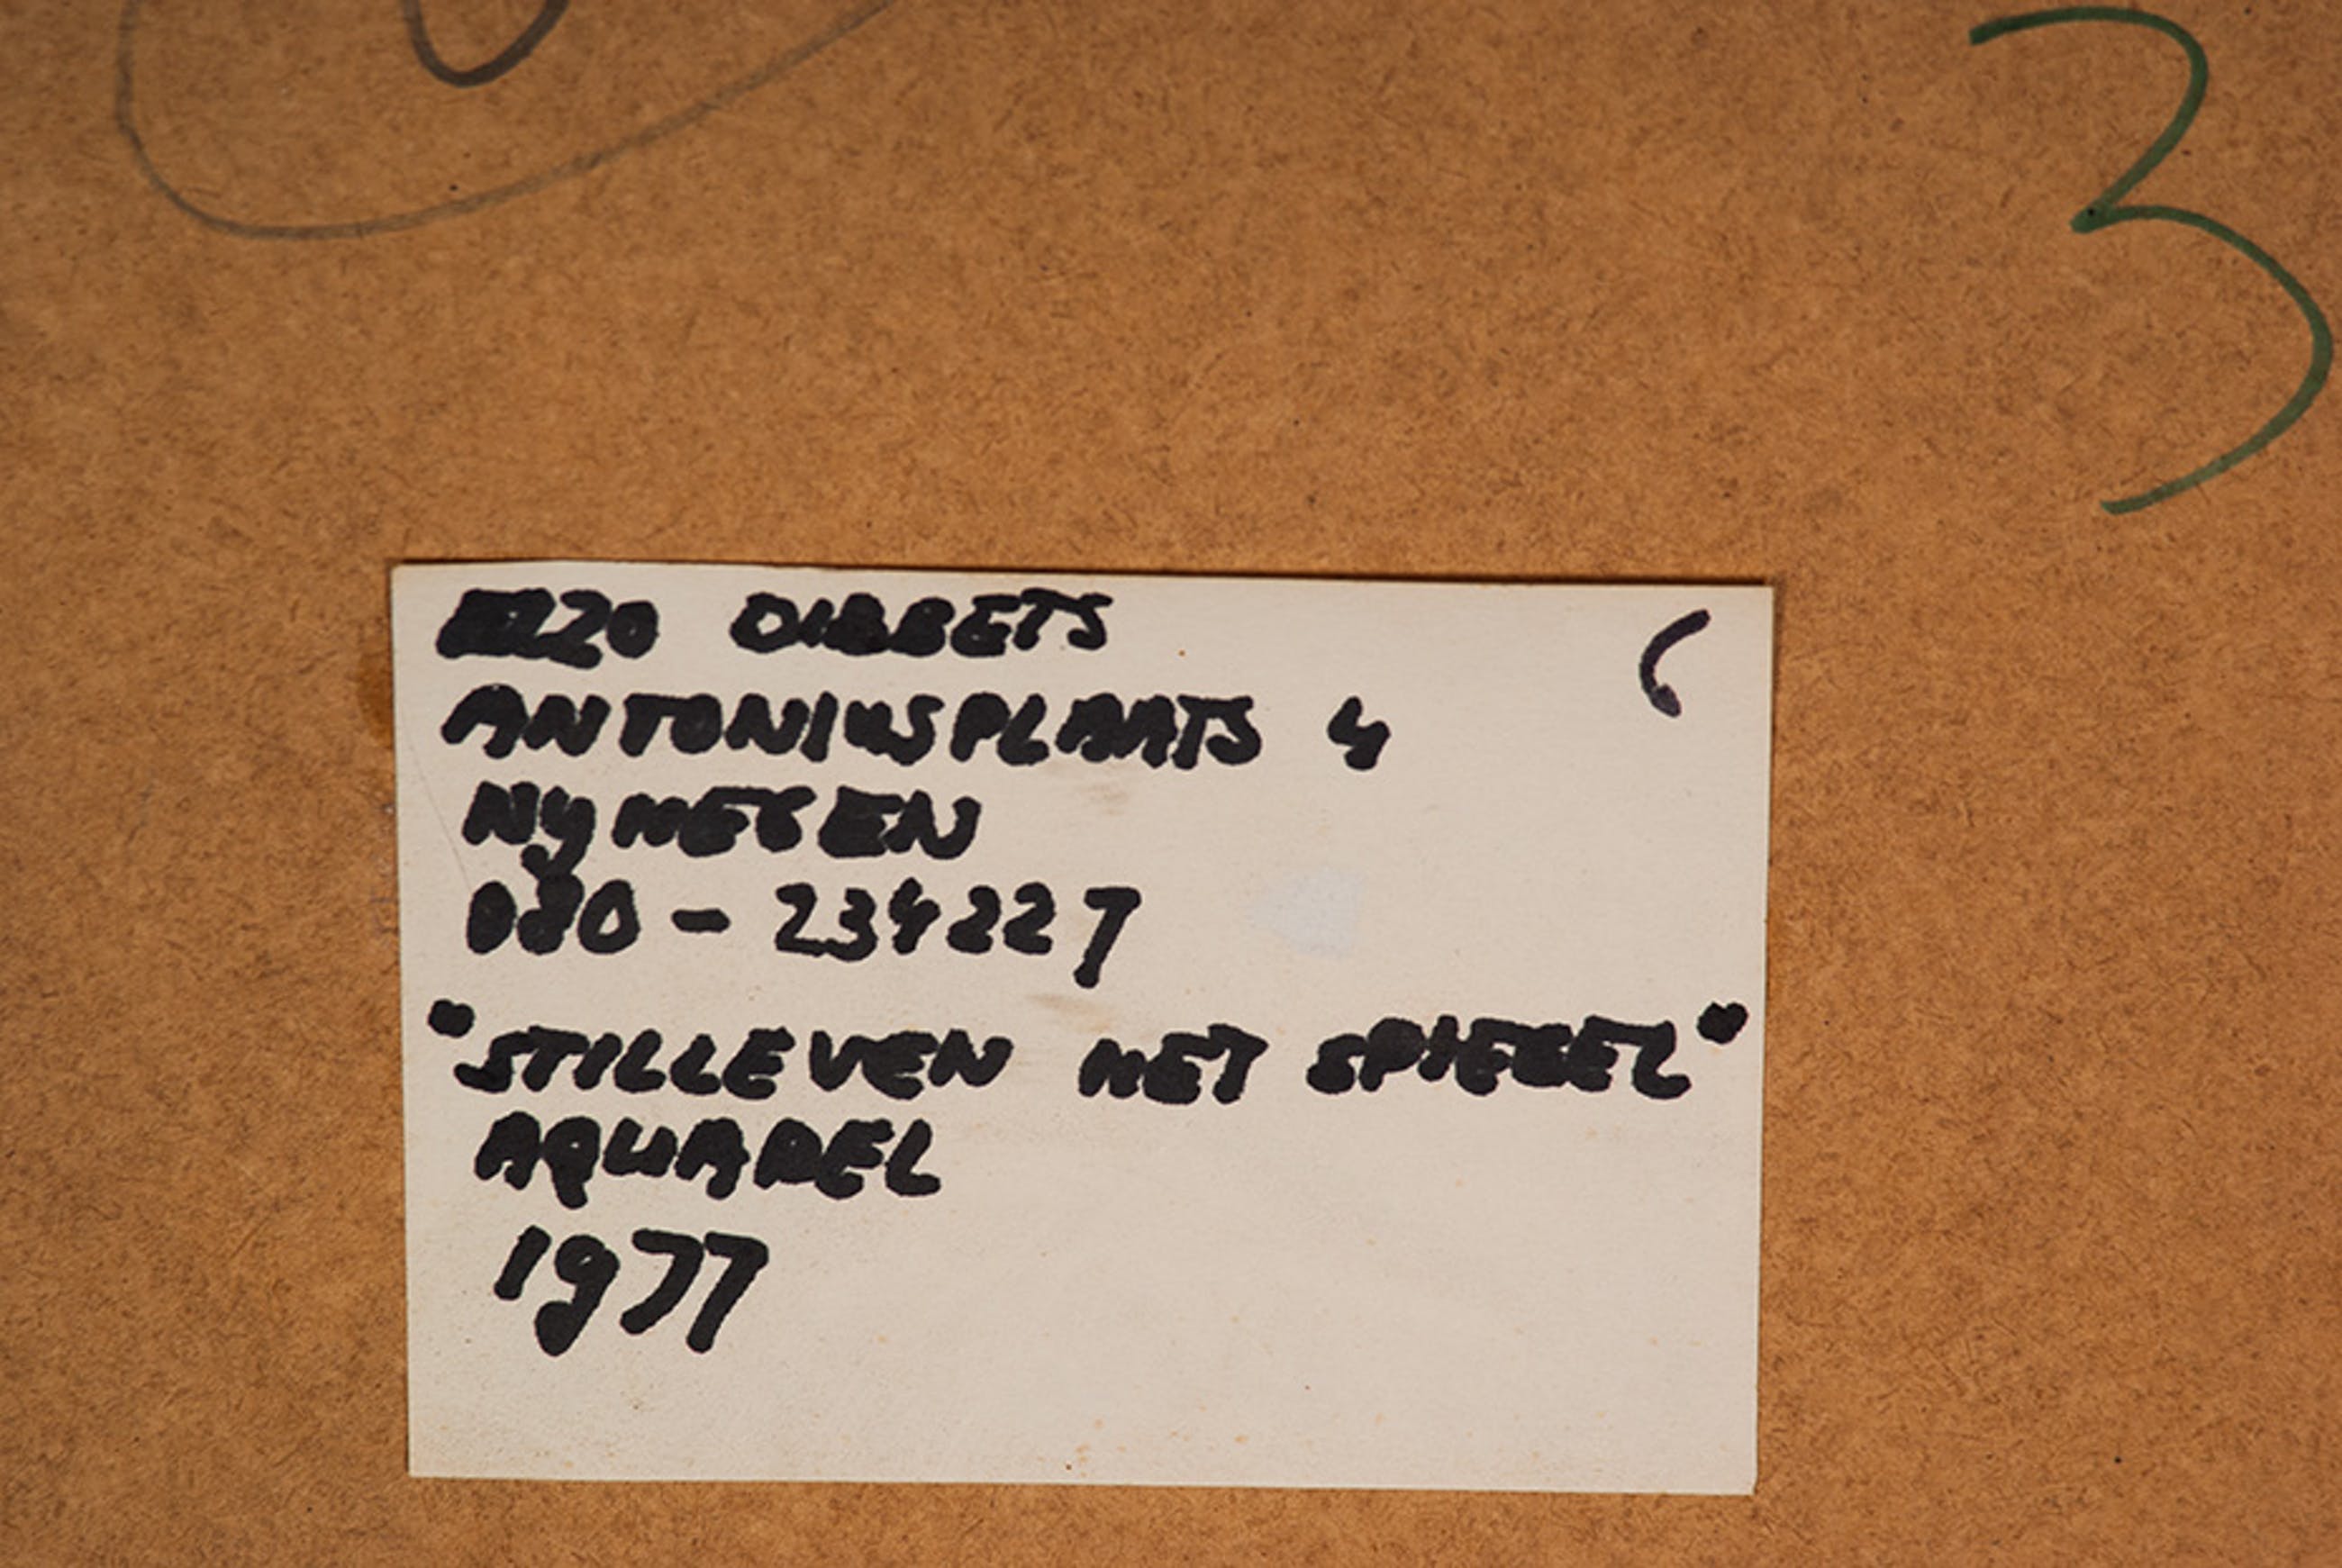 3
EZZO DIBBETS
ANTONIUSPLAATS 4
NYMEGEN
080 - 234227
"STILLEVEN MET SPIEGEL"
AQUAREL
1977